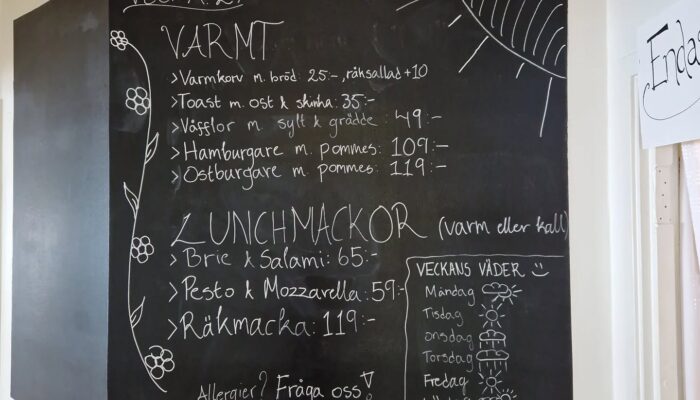 VARMT
>Varmkorv m. bröd 25:-, räksallad +10
>Toast m. ost & skinka: 35:-
>Våfflor m. sylt & grädde: 49:-
>Hamburgare m. pommes: 109:-
>Ostburgare m. pommes: 119:-
LUNCHMACKOR (varm eller kall)
>Brie & Salami: 65:-
>Pesto & Mozzarella: 59:-
>Räkmacka: 119:-
Allergier? Fråga oss!
VECKANS VÄDER
Måndag
Tisdag
Onsdag
Torsdag
Fredag
Endas